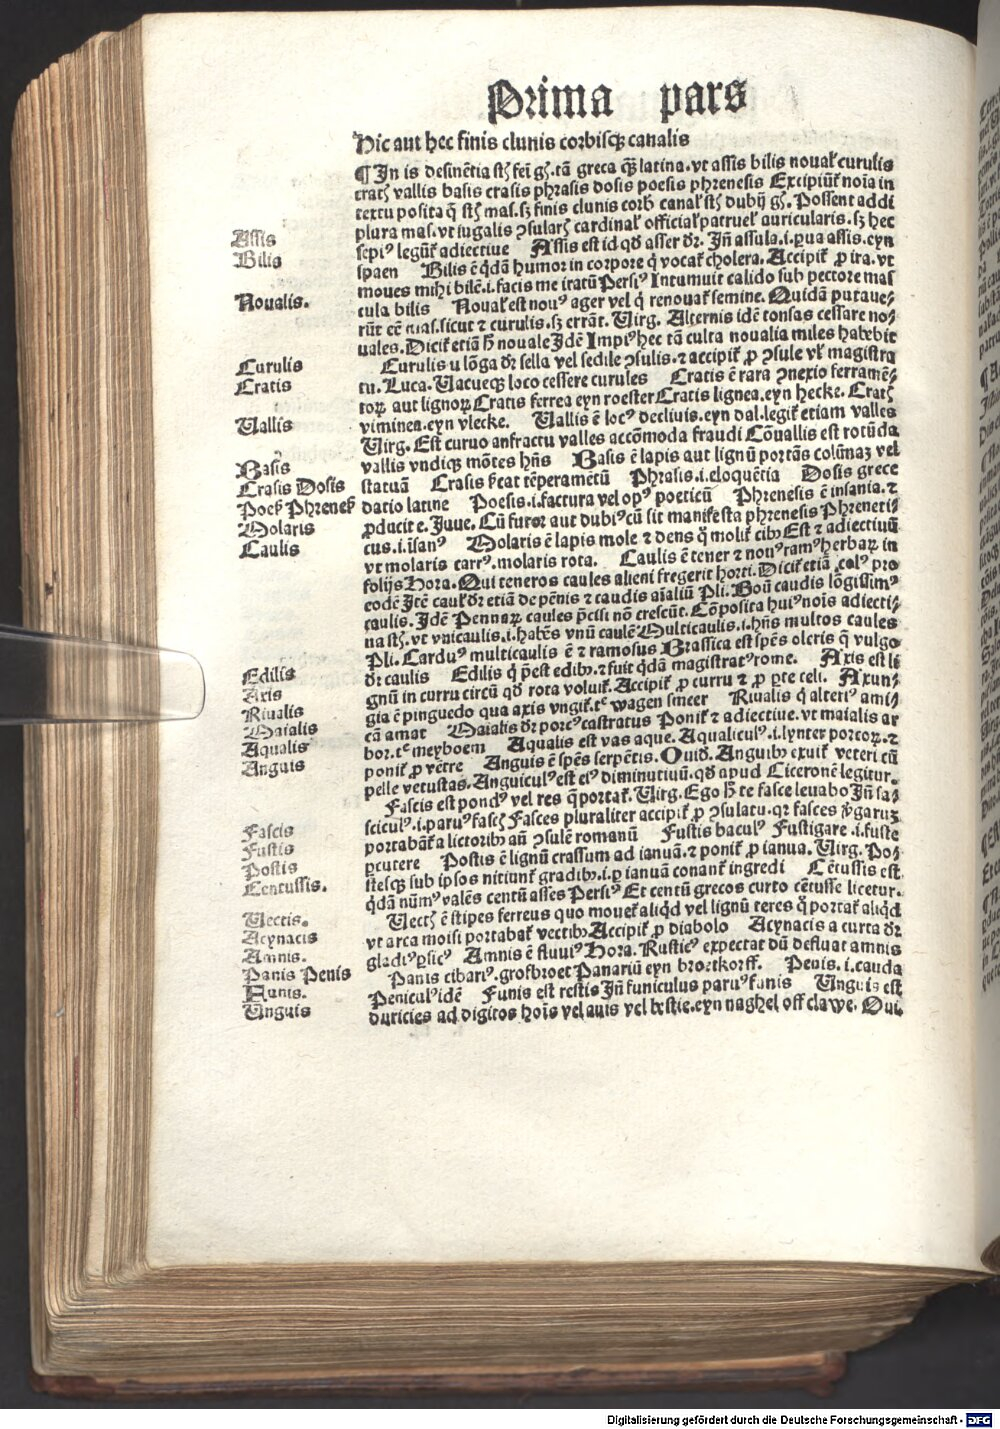 Prima pars
Hic aut hec finis clunis corbisq; canalis
¶ In is desinẽtia st̃ fei gñ. tã greca q̃ latina. vt assis bilis noual' curulis
crat̃ vallis basis crasis phrasis dosis poesis phrenesis Excipiũt̃ noĩa in
textu posita q̃ st̃ mas. sꝫ finis clunis corb̃ canal' st̃ dubij gñ. Possent addi
plura mas. vt iugalis ꝯsular̃ cardinal' official' patruel' auricularis. sꝫ hec
sepi⁹ legũt̃ adiectiue Assis est id qd̃ asser dr̃. Jñ assula .i. ꝑua assis. eyn
spaen Bilis ẽ q̃dã humor in corpore q̃ vocat̃ cholera. Accipit̃ ꝓ ira. vt
moues mihi bilẽ .i. facis me iratũ Persi⁹ Intumuit calido sub pectore mas
cula bilis Noual' est nou⁹ ager vel q̃ renouat̃ semine. Quidã putaue⸗
rũt eẽ mas. sicut ⁊ curulis. sꝫ errãt. Uirg. Alternis idẽ tonsas cessare no⸗
uales. Dicit̃ etiã h̃ nouale Idẽ Impi⁹ hec tã culta noualia miles habebit
Curulis u lõga dr̃ sella vel sedile ꝯsulis. ⁊ accipit̃ ꝓ ꝯsule vl' magistra
tu. Luca. Uacueq; loco cessere curules Cratis ẽ rara ꝯnexio ferramẽ⸗
toꝝ aut lignoꝝ Cratis ferrea eyn roester Cratis lignea. eyn hecke. Crat̃
viminea. eyn vlecke. Uallis ẽ loc⁹ decliuis. eyn dal. legit̃ etiam valles
Uirg. Est curuo anfractu valles accõmoda fraudi Cõuallis est rotũda
vallis vndiq; mõtes hñs Basis ẽ lapis aut lignũ portãs colũnaꝫ vel
statuã Crasis p̃eat tẽperamẽtũ Phrasis .i. eloquẽtia Dosis grece
datio latine Poesis .i. factura vel op⁹ poeticũ Phrenesis ẽ insania. ⁊
ꝓducit e. Juue. Cũ furor aut dubi⁹ cũ sit manifesta phrenesis Phreneti⸗
cus .i. ĩsan⁹ Molaris ẽ lapis mole ⁊ dens q̃ molit̃ cib⁹ Est ⁊ adiectiuũ
vt molaris carr⁹. molaris rota. Caulis ẽ tener ⁊ nou⁹ ram⁹ herbaꝝ in
folijs Hora. Qui teneros caules alieni fregerit horti. Dicit̃ etiã col' pro
eodẽ Itẽ caul' dr̃ etiã de pẽnis ⁊ caudis aĩaliũ Pli. Boũ caudis lõgissim⁹
caulis. Idẽ Pennaꝝ caules p̃cisi nõ crescũt. Cõposita hui⁹ noĩs adiecti⸗
na st̃. vt vnicaulis .i. habẽs vnũ caulẽ Multicaulis .i. hñs multos caules
Pli. Cardu⁹ multicaulis ẽ ⁊ ramosus Brassica est sp̃es oleris q̃ vulgo
dr̃ caulis Edilis q̃ p̃est edib⁹. ⁊ fuit q̃dã magistrat⁹ rome. Axis est li
gnũ in curru circũ qd̃ rota voluit̃. Accipit̃ ꝓ curru ⁊ ꝓ ꝑte celi. Axun⸗
gia ẽ pinguedo qua axis vngit̃. tẽ wagen smeer Riualis q̃ alteri⁹ ami⸗
cã amat Maialis dr̃ porc⁹ castratus Ponit̃ ⁊ adiectiue. vt maialis ar
bor. tẽ meyboem Aqualis est vas aque. Aqualicul⁹ .i. lynter porcoꝝ. ⁊
ponit̃ ꝓ vẽtre Anguis ẽ sp̃es serpẽtis. Ouid. Anguib⁹ exuit̃ veteri cũ
pelle vetustas. Anguicul⁹ est ei⁹ diminutiuũ. qd̃ apud Ciceronẽ legitur.
Fascis est pond⁹ vel res q̃ portat̃. Uirg. Ego h̃ te fasce leuabo Jñ fa⸗
scicul⁹ .i. paru⁹ fasc̃ Fasces pluraliter accipit̃ ꝓ ꝯsulatu. qꝛ fasces v̓garuꝫ
portabãt̃ a lictorib⁹ añ ꝯsulẽ romanũ Fustis bacul⁹ Fustigare .i. fuste
ꝑcutere Postis ẽ lignũ crassum ad ianuã. ⁊ ponit̃ ꝓ ianua. Uirg. Po⸗
stesq; sub ipsos nitiunt̃ gradib⁹ .i. ꝑ ianuam conant̃ ingredi Cẽtussis est
q̃dã nũm⁹ valẽs centũ asses Persi⁹ Et centũ grecos curto cẽtusse licetur.
Uect̃ ẽ stipes ferreus quo mouet̃ aliqd vel lignũ teres q̃ portat̃ aliqd
vt arca moisi portabat̃ vectib⁹ Accipit̃ ꝓ diabolo Acynacis a curta dr̃
gladi⁹ ꝑsic⁹ Amnis ẽ fluui⁹ Hora. Rustic⁹ expectat dũ defluat amnis
Panis cibari⁹. grofbroet Panariũ eyn broetkorff. Penis .i. cauda
Penicul⁹ idẽ Funis est restis Jñ funiculus paru⁹ funis Unguis est
duricies ad digitos hoĩs vel auis vel bestie. eyn naghel off clawe. Oui.
Assis
Bilis
Noualis.
Curulis
Cratis
Uallis
Basis
Crasis Dosis
Poes̃ Phrenes̃
Molaris
Caulis
Edilis
Axis
Riualis
Maialis
Aqualis
Anguis
Fascis
Fustis
Postis
Centussis.
Uectis.
Acynacis
Amnis.
Panis Penis
Funis.
Unguis
Digitalisierung gefördert durch die Deutsche Forschungsgemeinschaft - DFG